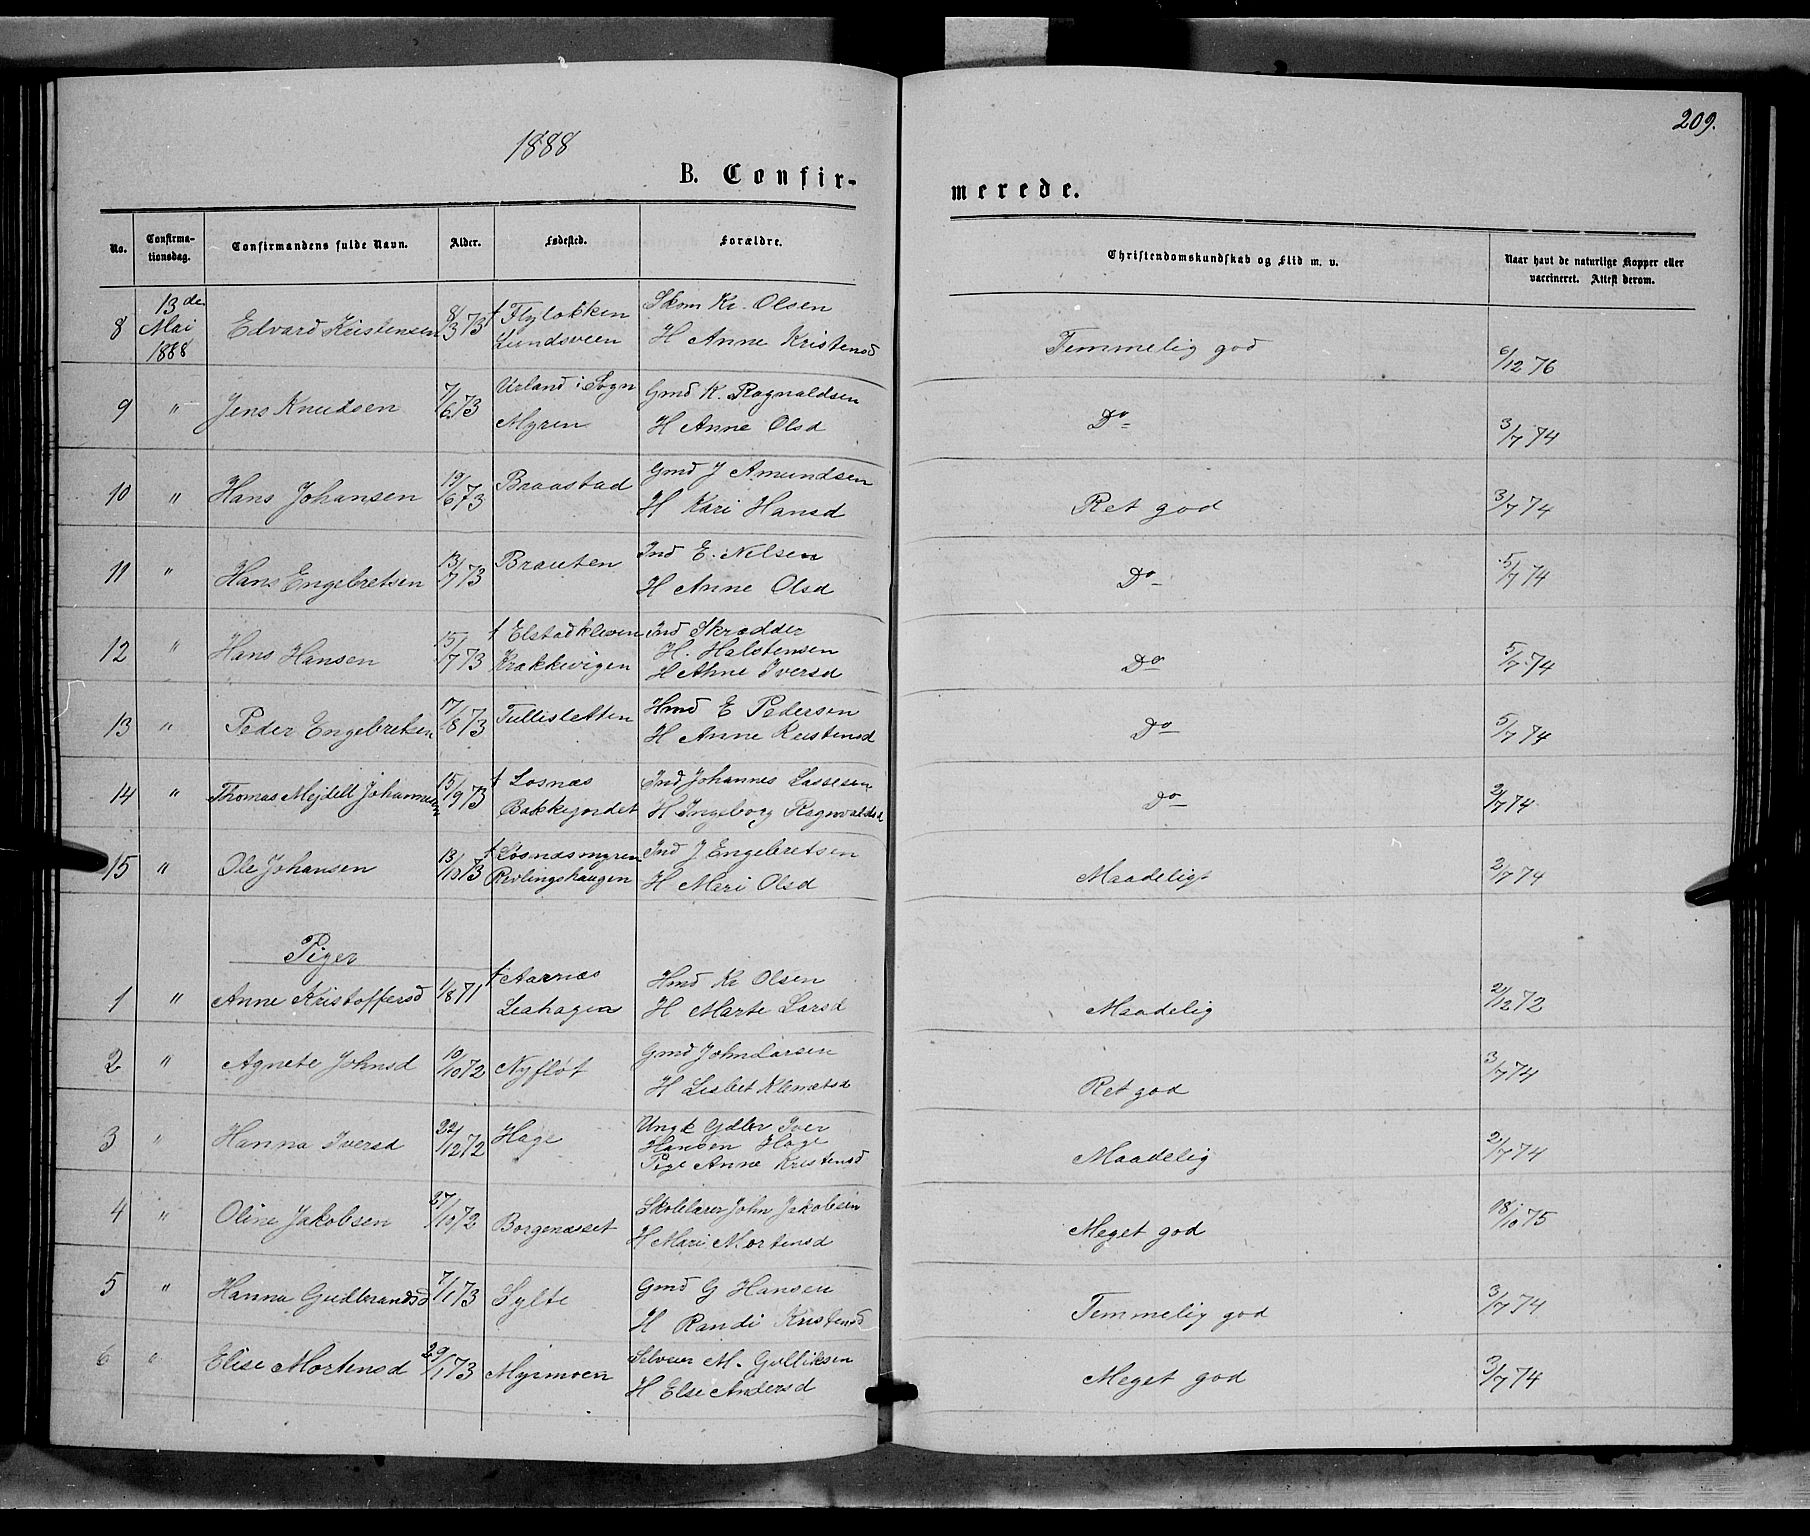 209.
1888
B. Confirmerede.
No. Confirmationsdag. Confirmandens fulde Navn. Alder. Fødested. Forældre. Christendomskundskab og Flid m. v. Naar havt de naturlige Kopper eller vaccineret. Attest derom.
8 13de Mai 1888 Edvard Kristensen 8/3 73 Flyløkken Skom Kr. Olsen
Lundsveen H Anne Kristensd Temmelig god 6/12 76
9 " Jens Knudsen 7/6 73 Urland i Sogn Gmd K. Ragnaldsen
Myren H Anne Olsd Do 3/7 74
10 " Hans Johansen 19/6 73 Braastad Gmd J Amundsen
H Kari Hansd Ret god 3/7 74
11 " Hans Engebretsen 13/7 73 Brauten Ind E. Nilsen
H Anne Olsd Do 5/7 74
12 " Hans Hansen 15/7 73 Elstadkleven Ind Skrædder
Krækkevigen H. Halstensen
H Anne Iversd Do 5/7 74
13 " Peder Engebretsen 17/8 73 Tullisletten Hmd E Pedersen
H Anne Kristensd Do 5/7 74
14 " Thomas Mejdell Johannesen 15/9 73 Losnæs Ind Johannes Lassesen
Bakkejordet H Ingeborg Ragnvaldsd Do 2/7 74
15 " Ole Johansen 13/10 73 Losnæsmyren Ind J Engebretsen
Revlingshaugen H Mari Olsd Maadeligt 2/7 74
Piger
1 " Anne Kristoffersd 1/8 71 Aarnæs Hmd Kr Olsen
Leahagen H Marte Larsd Maadelig 2/12 72
2 " Agnete Johnsd 10/10 72 Nyfløt Gmd John Larsen
H Lisbet Klemetsd Ret god 3/7 74
3 " Hanna Iversd 22/12 72 Hage Ungk Gdbr Iver
Hansen Hage
Pige Anne Kristensd Maadelig 2/7 74
4 " Oline Jakobsen 27/10 72 Borgenæsset Skolelærer John Jakobsen
H Mari Mortensd Meget god 18/10 75
5 " Hanna Gudbrandsd 7/1 73 Sylte Gmd G Hansen
H Randi Kristensd Temmelig god 3/7 74
6 " Elise Mortensd 29/1 73 Myrmoen Selveier M. Gulliksen
H Else Andersd Meget god 3/7 74